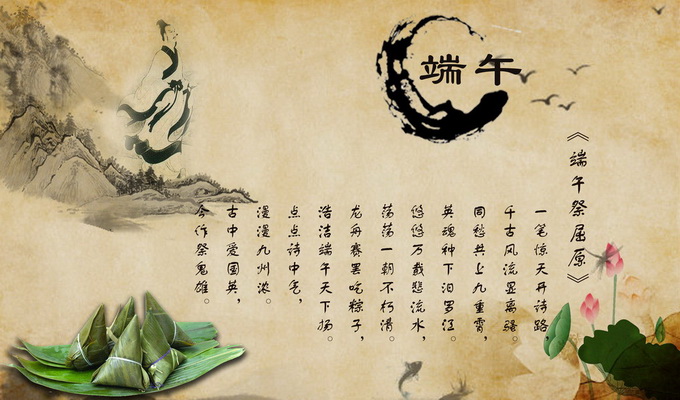 端午
《端午祭屈原》
一笔惊天开诗路,
千古风流显离骚。
同愁共上九重霄,
英魂种下汨罗江。
悠悠万载悲流水,
荡荡一朝不朽滑。
龙舟赛罢吃粽子,
浩洁端午天下扬。
点点诗中老,
漫漫九州浓。
古中爱国英,
今作祭鬼雄。